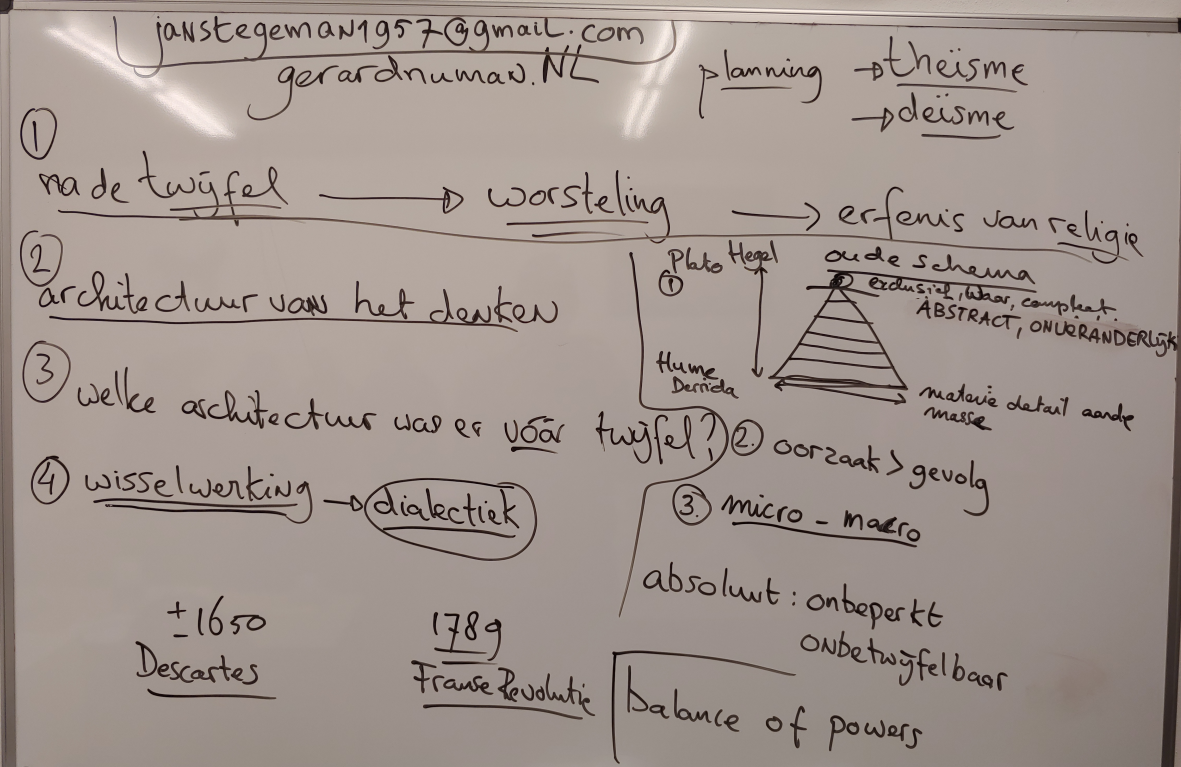 janstegeman1957@gmail.com
gerardnuman.NL
planning → theïsme
→ deïsme
①
na de twijfel → worsteling → erfenis van religie
②
architectuur van het denken
③
welke architectuur was er vóór twijfel?
④ wisselwerking → dialectiek
± 1650
Descartes
1789
Franse Revolutie
Plato Hegel
①
Hume
Derrida
oude schema
exclusief, waar, compleet.
ABSTRACT, ONVERANDERLIJK
materie detail aarde
massa
②. oorzaak > gevolg
③. micro - macro
absoluut : onbeperkt
onbetwijfelbaar
balance of powers